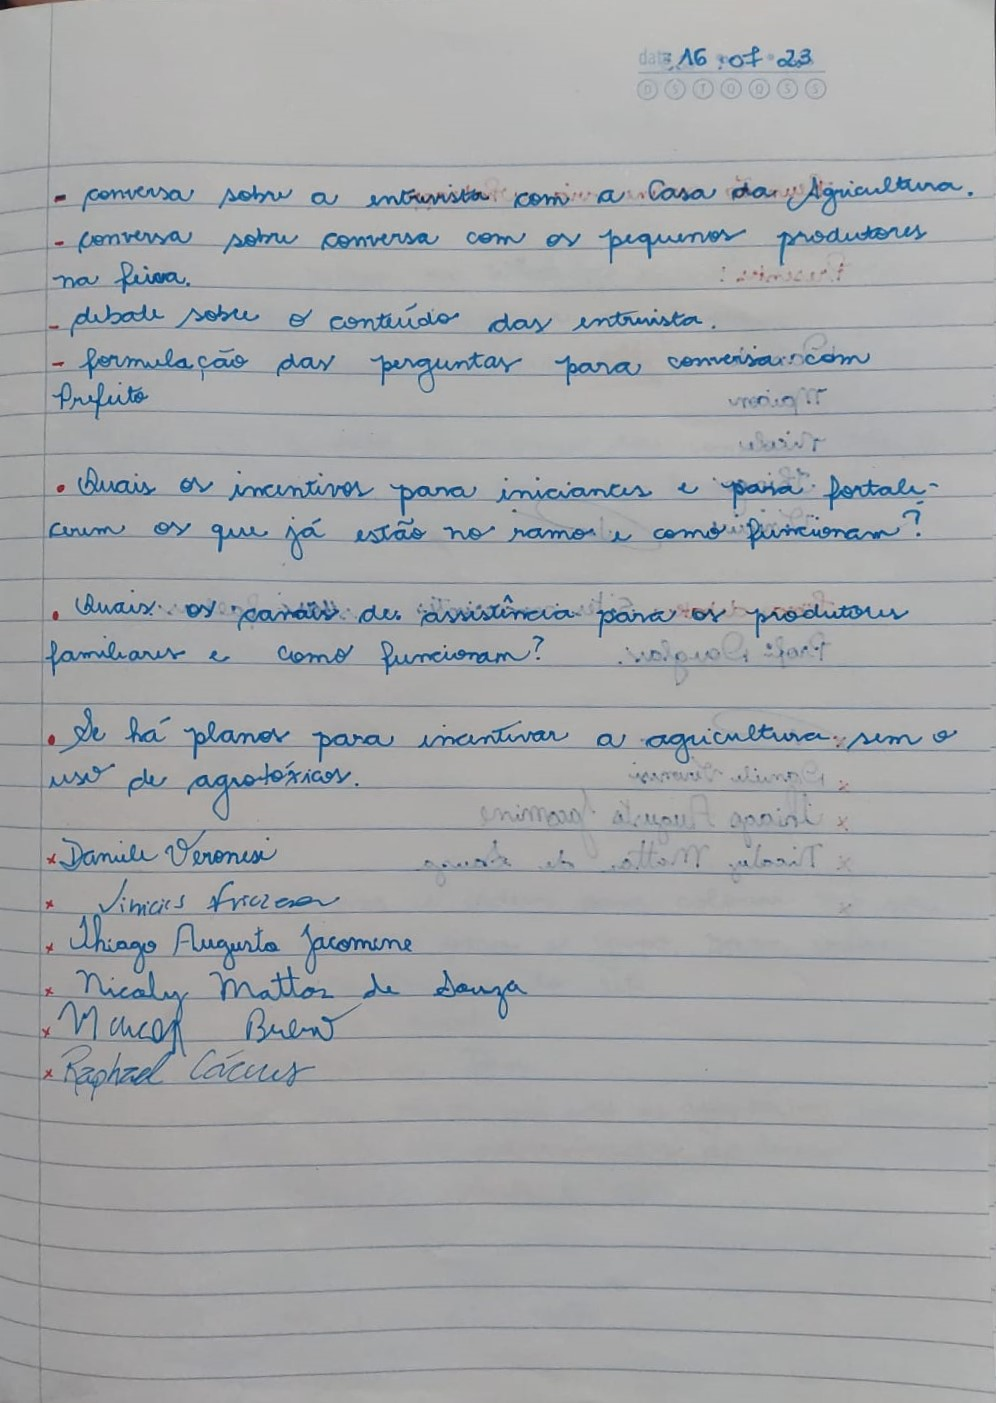 data: 16 . 07 . 23
D S T Q Q S S
- conversa sobre a entrevista com a Casa da Agricultura.
- conversa sobre conversa com os pequenos produtores
na feira.
- debate sobre o conteúdo das entrevista.
- formulação das perguntas para conversa com
Prefeito
• Quais os incentivos para iniciantes e para fortale-
cerem os que já estão no ramo e como funcionam?
• Quais os canais de assistência para os produtores
familiares e como funcionam?
• Se há planos para incentivar a agricultura sem o
uso de agrotóxicos.
x Daniele Veronesi
x Vinicius
x Thiago Augusto Jacomine
x Nicaly Mattos de Souza
x Bueno
x Raphael Cáceres